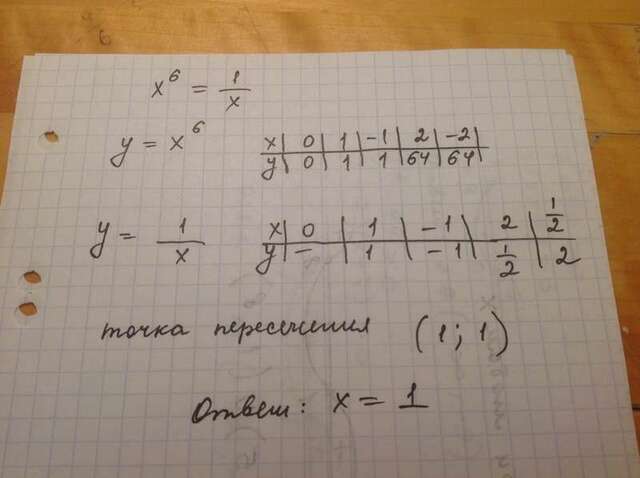 x⁶ = 1/x
y = x⁶
x | 0 | 1 | -1 | 2 | -2 |
y | 0 | 1 | 1 | 64 | 64 |
y = 1/x
x | 0 | 1 | -1 | 2 | 1/2
y | - | 1 | -1 | 1/2 | 2
точка пересечения (1; 1)
Ответ: x = 1